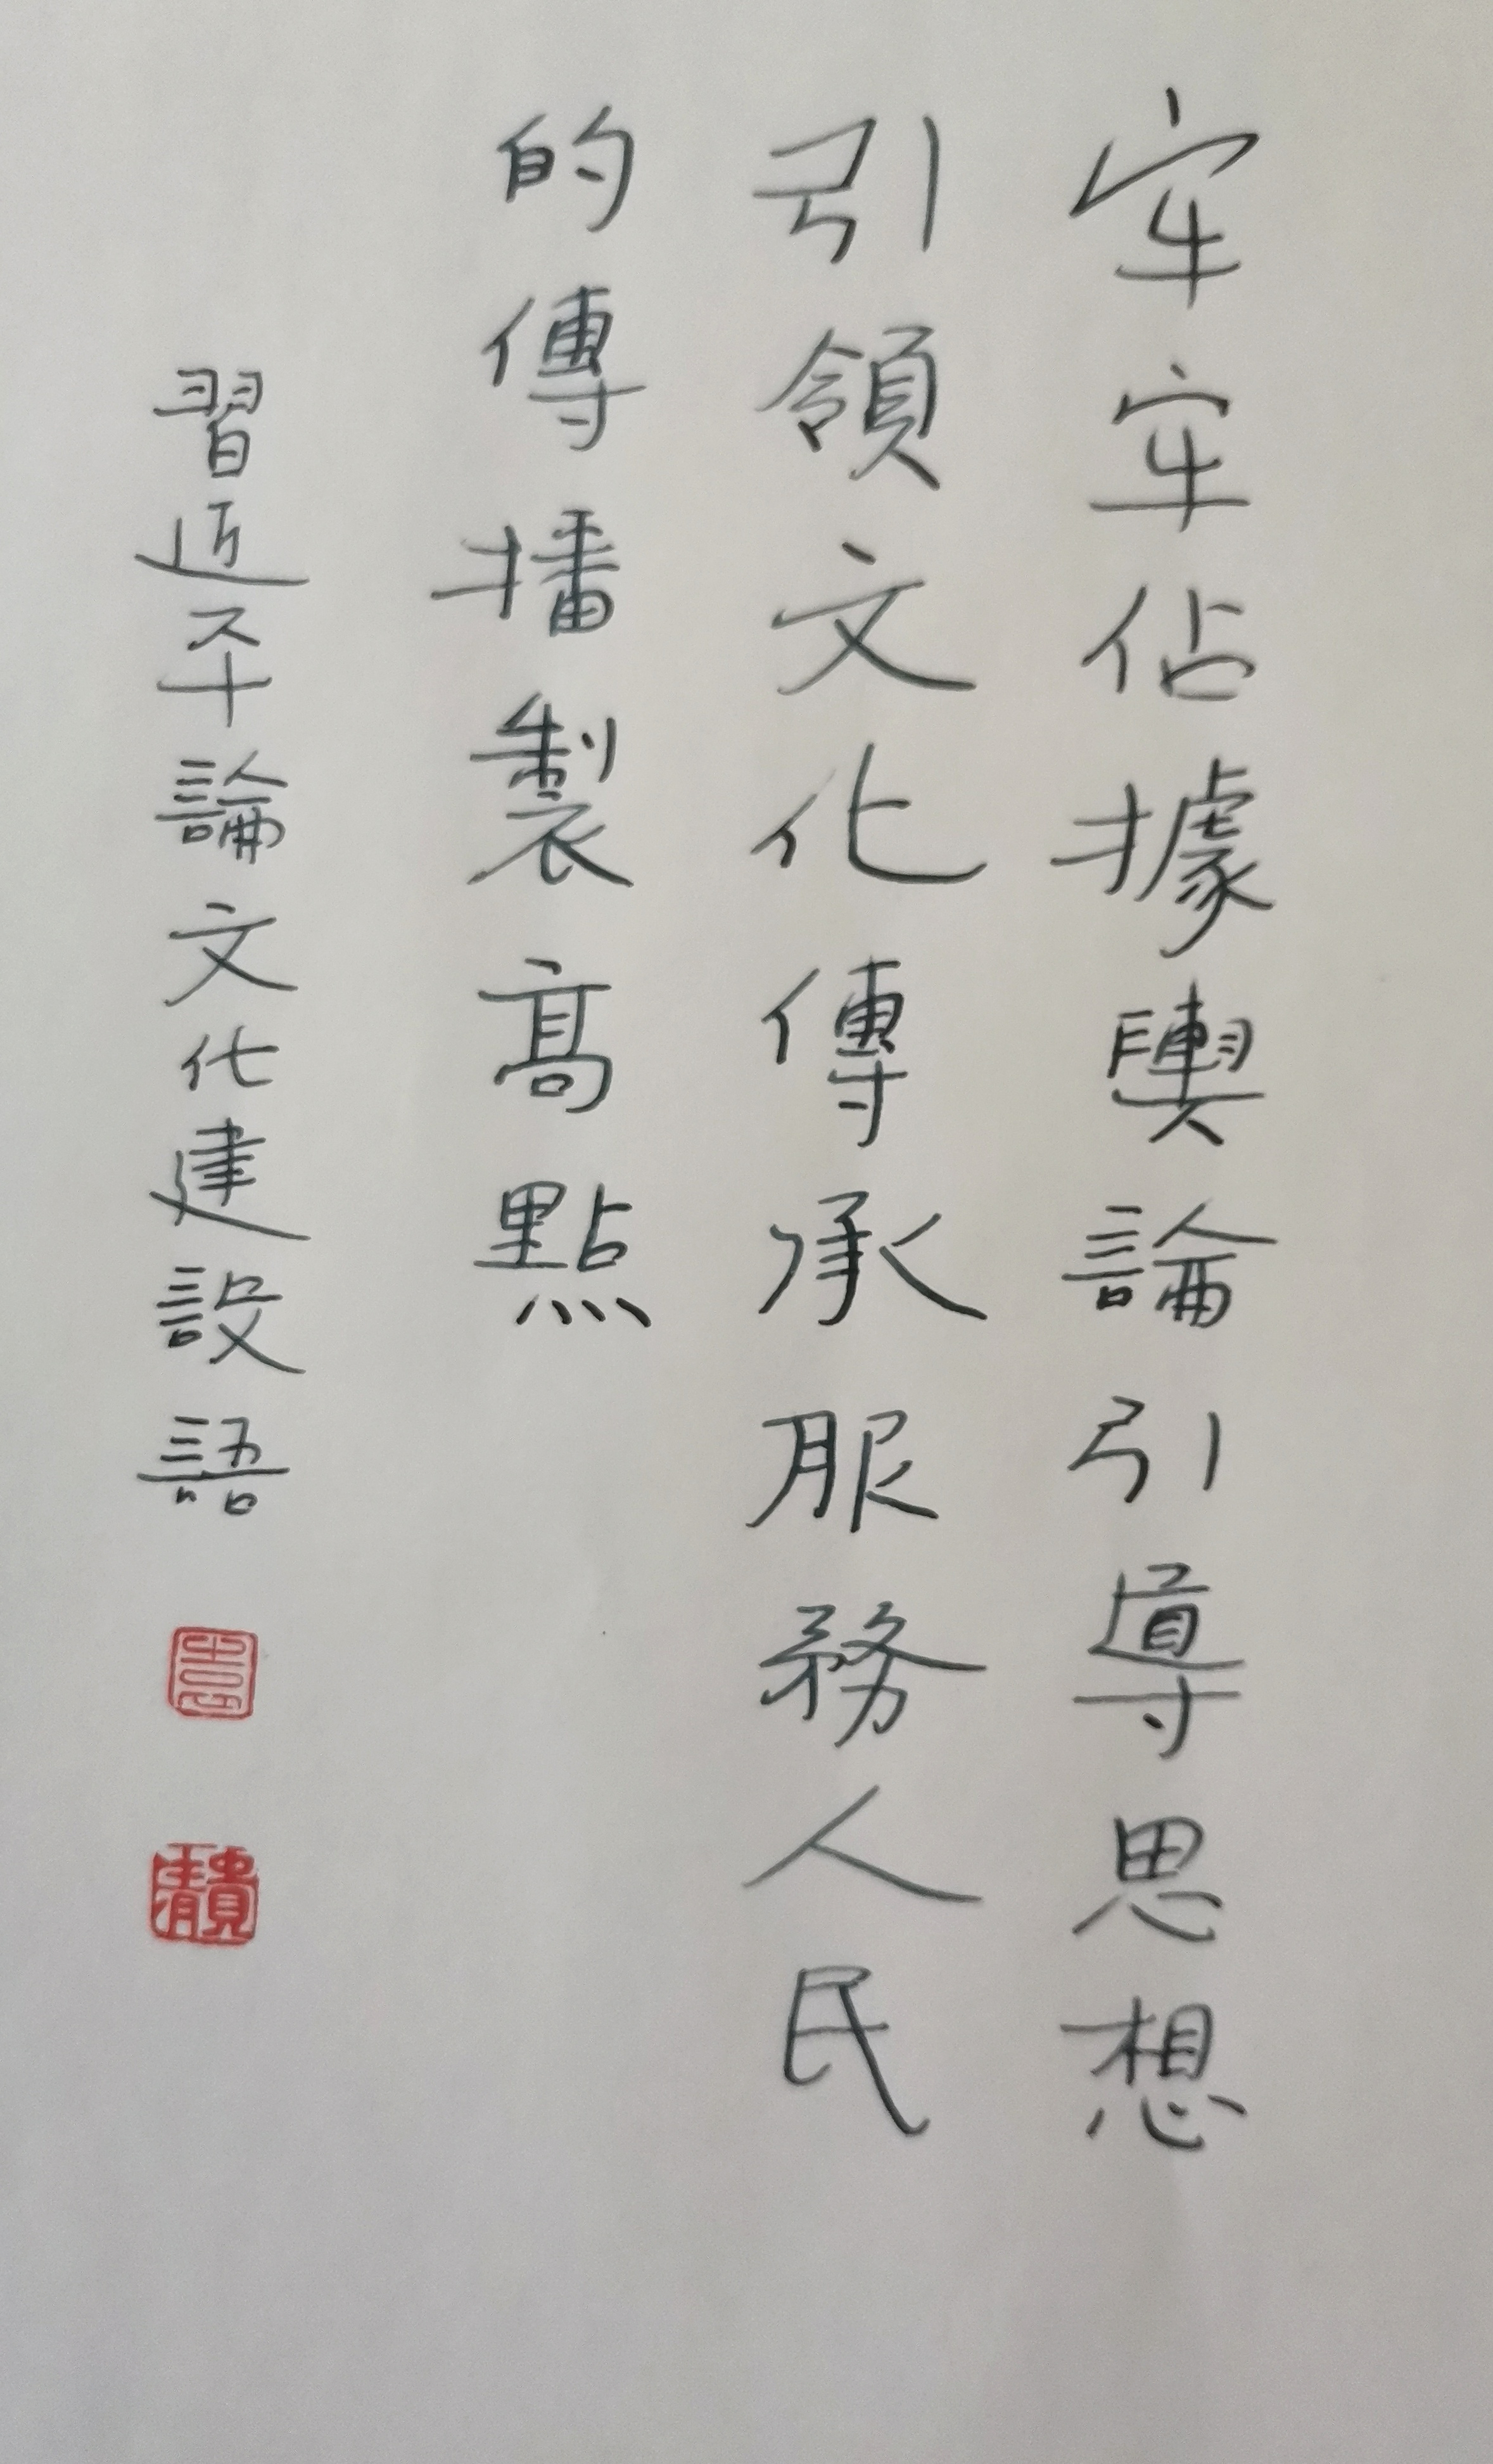 牢牢佔據輿論引導思想
引領文化傳承服務人民
的傳播製高點
習近平論文化建設語